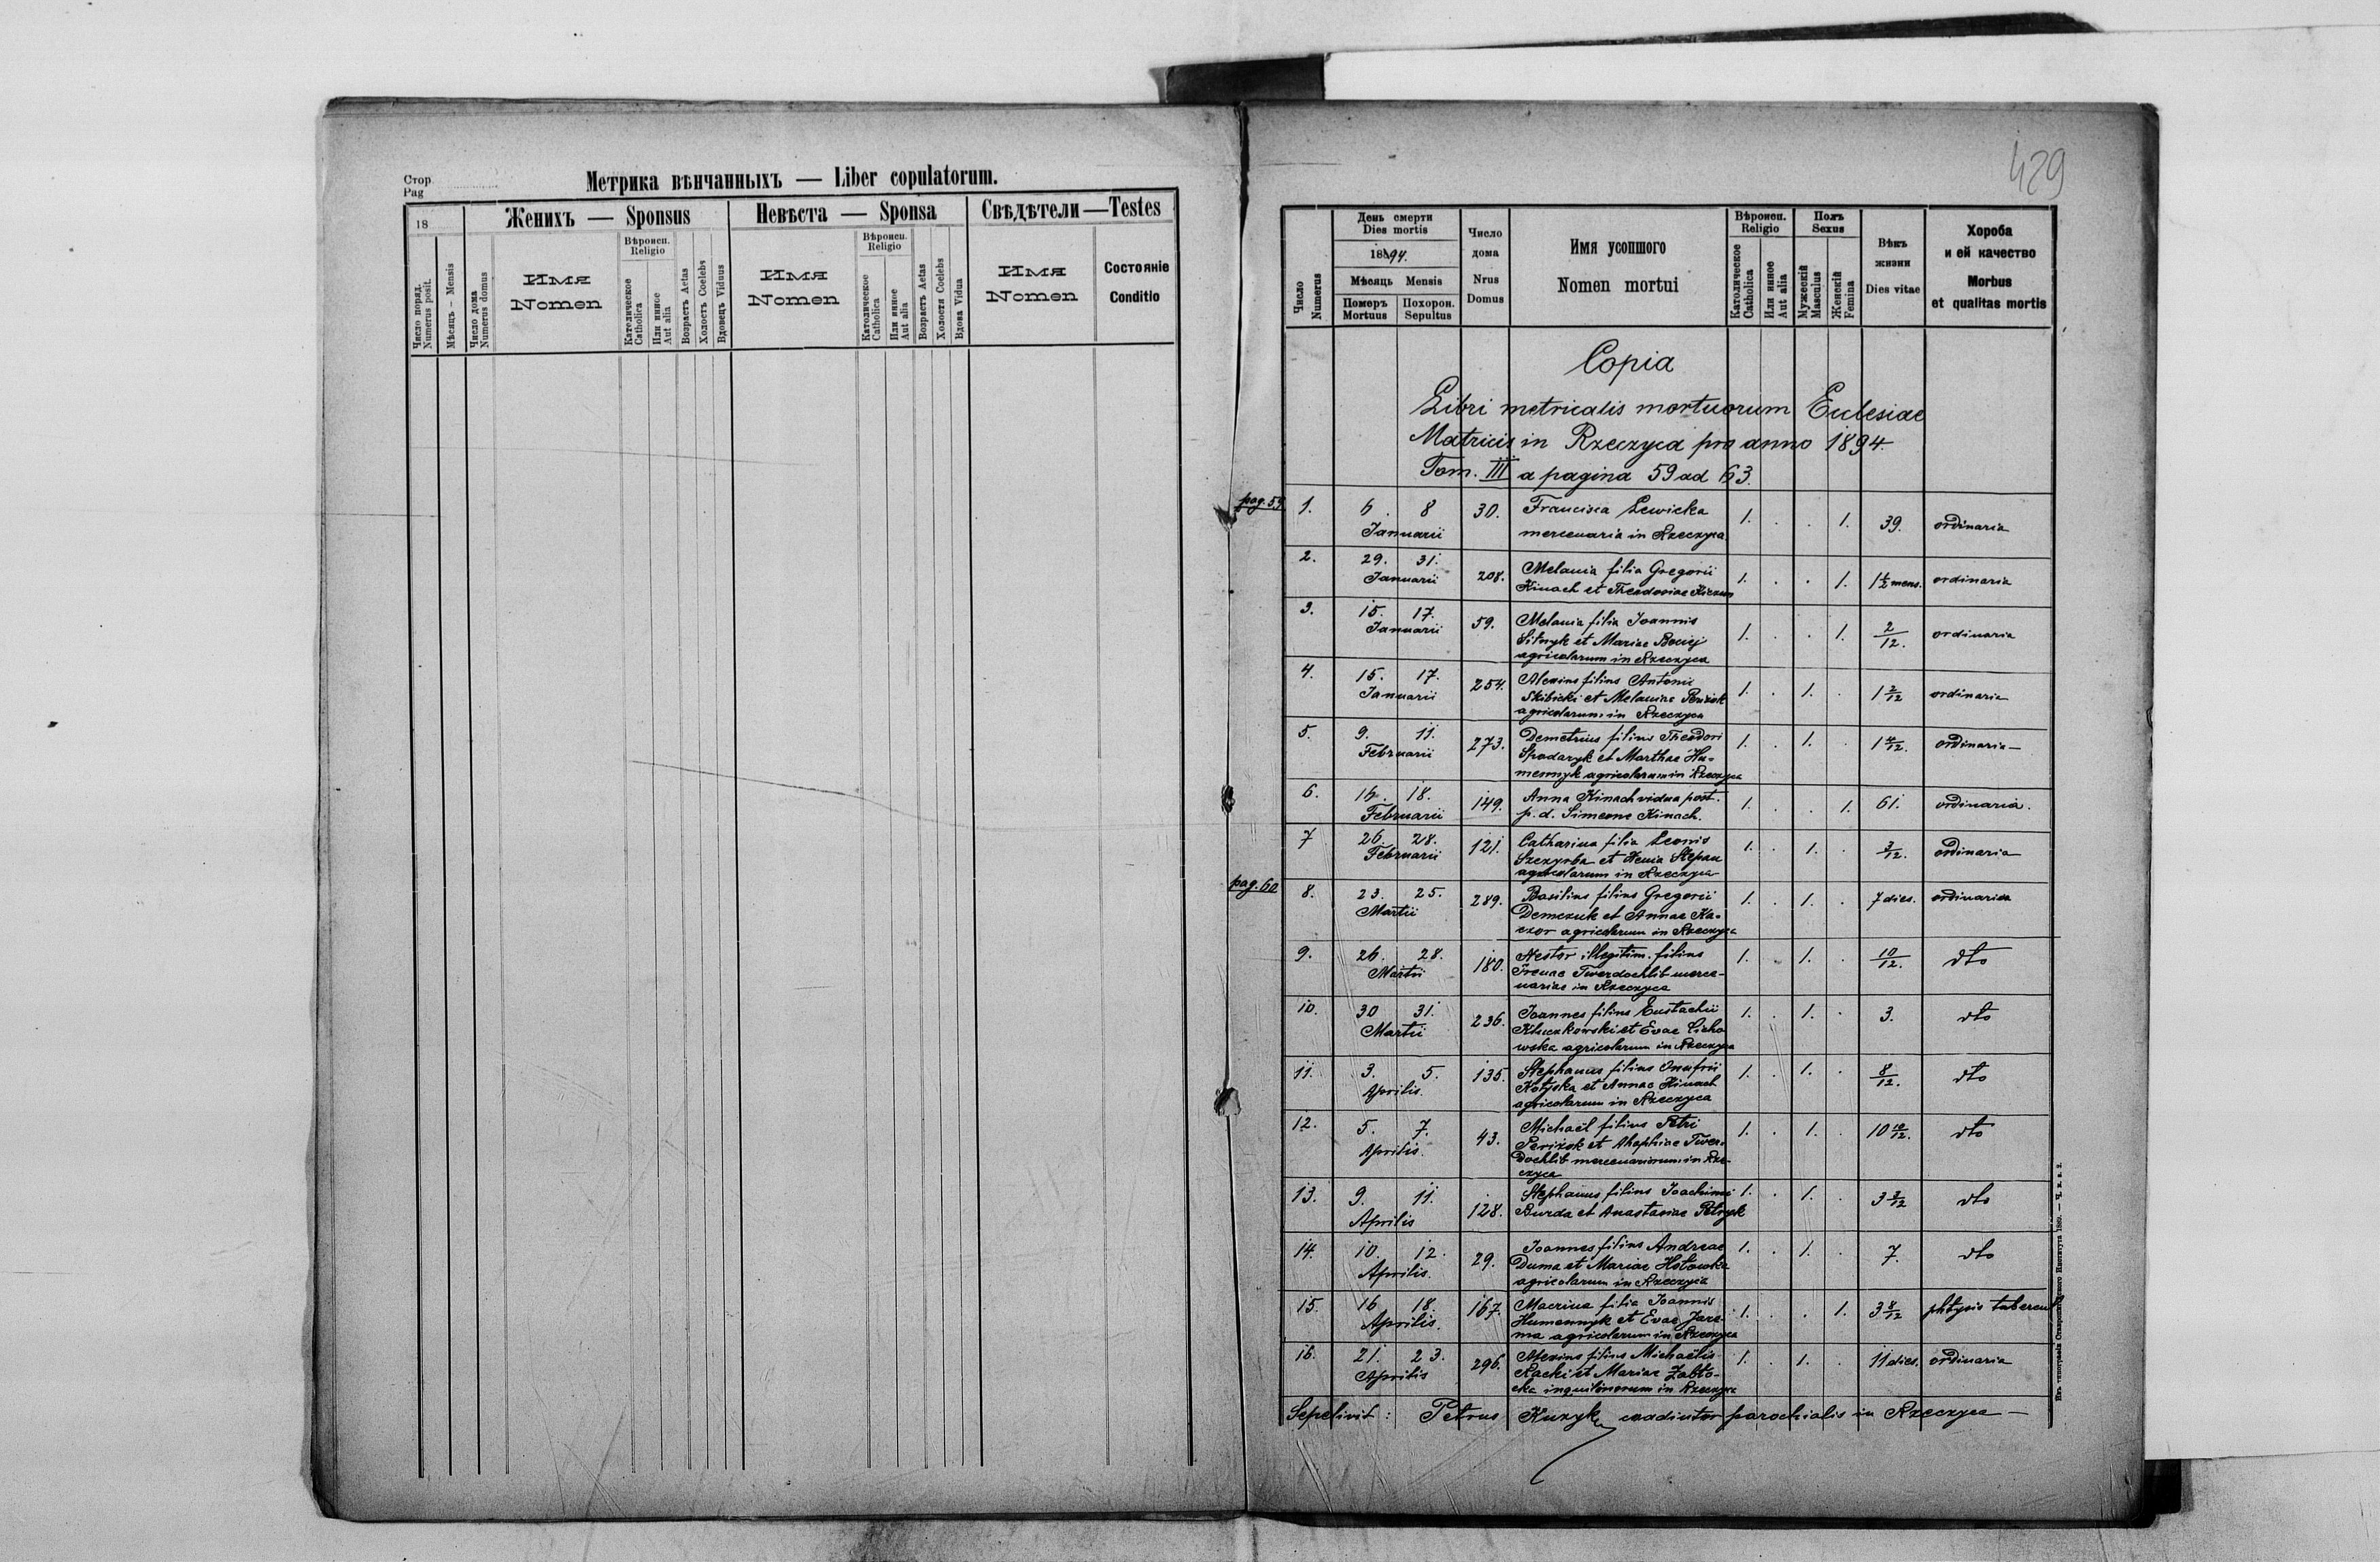 Стор.
Pag
Метрика вѣнчанныхъ — Liber copulatorum.
18
Женихъ — Sponsus
Невѣста — Sponsa
Свѣдѣтели — Testes
Число поряд.
Numerus posit.
Мѣсяцъ — Mensis
Число дома
Numerus domus
Имя
Nomen
Вѣроисп.
Religio
Католическое
Catholica
Или инное
Aut alia
Возрастъ Aetas
Холостъ Coelebs
Вдовецъ Viduus
Имя
Nomen
Вѣроисп.
Religio
Католическое
Catholica
Или инное
Aut alia
Возрастъ Aetas
Холостя Coelebs
Вдова Vidua
Имя
Nomen
Состояніе
Conditio
429
Число
Numerus
День смерти
Dies mortis
1894.
Мѣсяць Mensis
Померъ
Mortuus
Похорон.
Sepultus
Число
дома
Nrus
Domus
Имя усопшого
Nomen mortui
Вѣроисп.
Religio
Католическое
Catholica
Или инное
Aut alia
Полъ
Sexus
Мужескій
Masculus
Женскій
Femina
Вѣкъ
жизни
Dies vitae
Хороба
и ей качество
Morbus
et qualitas mortis
Copia
Libri metricalis mortuorum Eclesiae
Matricis in Rzeczyca pro anno 1894.
Tom. III a pagina 59 ad 63.
pag. 59
1. 6. 8 30. Francisca Lewicka 1. . . 1. 39. ordinaria
Januarii mercenaria in Rzeczyca
2. 29. 31. 208. Melania filia Gregorii 1. . . 1. 1½ mens. ordinaria
Januarii Kinach et Theodosiae
3. 15. 17. 59. Melania filia Joannis 1. . . 1. 2/12. ordinaria
Januarii Sitnyk et Mariae
agricolarum in Rzeczyca
4. 15. 17. 254. Alexius filius Antonii 1. . 1. . 1 2/12 ordinaria
Januarii Skibicki et Melaniae
agricolarum in Rzeczyca
5. 9. 11. 273. Demetrius filius Theodori 1. . 1. . 1 4/12. ordinaria —
Februarii Spodaryk et Marthae Hu-
mennyk agricolarum in Rzeczyca
6. 16. 18. 149. Anna Kinach vidua post. 1. . . 1. 61. ordinaria.
Februarii p. d. Simeone Kinach.
7 26. 28. 121. Catharina filia Leonis 1. . 1. . 3/12. ordinaria
Februarii Szczyrba et Xenia Stepan
agricolarum in Rzeczyca
pag. 60
8. 23. 25. 289. Basilius filius Gregorii 1. . 1. . 7 dies. ordinaria
Martii Demczuk et Annae Ka-
czor agricolarum in Rzeczyca
9. 26. 28. 180. Nestor illegitim. filius 1. . 1. . 10/12. dto
Martii Irenae Twerdochlib merce-
nariae in Rzeczyca
10. 30 31. 236. Joannes filius Eustachii 1. . 1. . 3. dto
Martii Kluczkowski et Evae Licho
wska agricolarum in Rzeczyca
11. 3. 5. 135. Stephanus filius Onufrii 1. . 1. . 8/12. dto
Aprilis. Kotyska et Annae Kinach
agricolarum in Rzeczyca
12. 5. 7. 43. Michaël filius Petri 1. . 1. . 10 10/12. dto
Aprilis. Perizok et Ahaphiae Twer-
dochlib mercenariorum in Rze-
czyca
13. 9. 11. 128. Stephanus filius Joachimi 1. . 1. . 3 3/12 dto
Aprilis Burda et Anastasiae Petryk
14. 10. 12. 29. Joannes filius Andreae 1. . 1. . 7. dto
Aprilis. Duma et Mariae Hotowka
agricolarum in Rzeczyca
15. 16 18. 167. Macrina filia Joannis 1. . . 1. 3 8/12 phtysis tubercul
Aprilis. Humennyk et Evae Jare-
ma agricolarum in Rzeczyca
16. 21. 23. 296. Alexius filius Michaëlis 1. . 1. . 11 dies. ordinaria
Aprilis Racki et Mariae Zabło-
cka inquilinorum in Rzeczyca
Sepelivit: Petrus Kuzyk coadiutor parochialis in Rzeczyca —
Изъ типографіи Ставропигійского Института 1889.